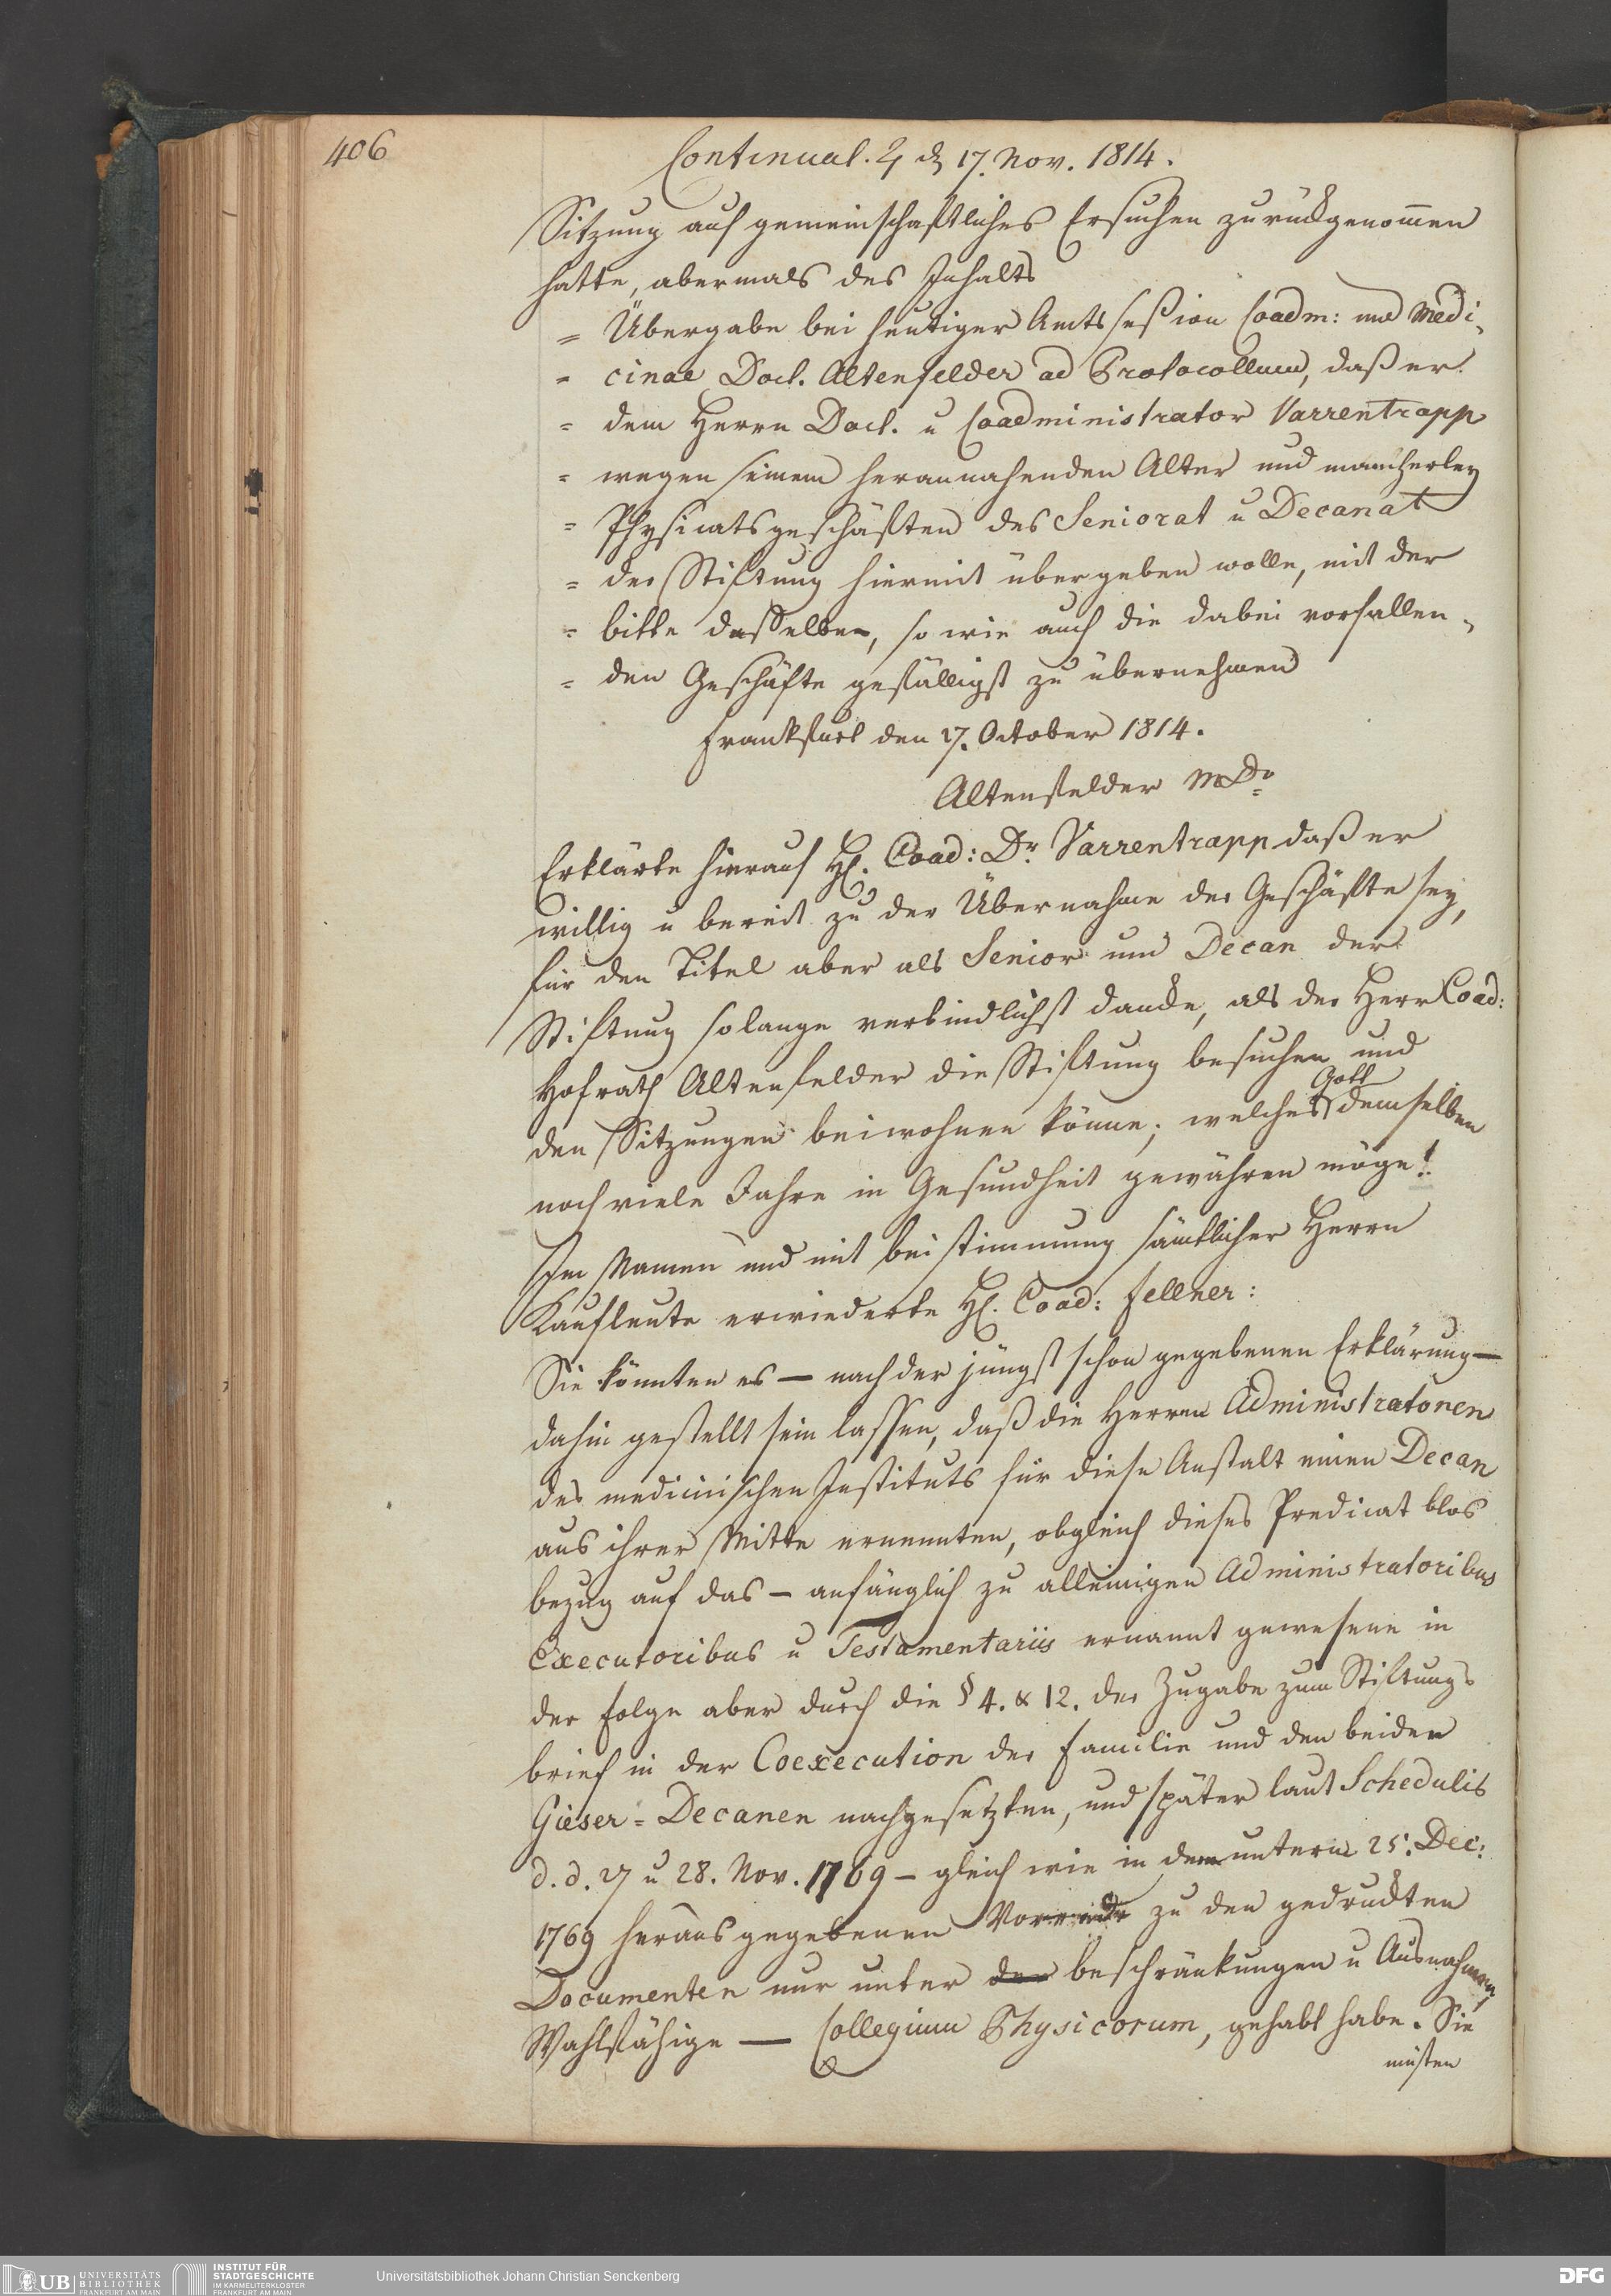 406
Continuat. ♃ d 17. Nov. 1814.
Sitzung auf gemeinschaftliches Ersuchen zurückgenom̅en
hatte, abermals des Inhalts
= Übergabe bei heutiger Amtsseßion Coadm: und Medi-
= cinae Doct. Altenfelder ad Protocollum, daß er
= dem Herrn Doct. u Coadministrator Varrentrapp
= wegen seinem herannahenden Alter und mancherley
= Physicatsgeschäften des Seniorat u Decanat
= der Stiftung hiermit übergeben wolle, mit der
= bitte dasselbe, so wie auch die dabei vorfallen-
= den Geschäfte gefälligst zu übernehmen
Frankfurt den 17. October 1814.
Altenfelder MDr
Erklärte hierauf H. Coad: Dr. Varrentrapp daß er
willig u bereit zu der Übernahme der Geschäfte sey,
für den Titel aber als Senior und Decan der
Stiftung solange verbindlichst dancke, als der Herr Coad:
Hofrath Altenfelder die Stiftung besuchen und
den Sitzungen beiwohnen könne; welches Gott demselben
noch viele Jahre in Gesundheit gewähren möge!
Im Namen und mit beistimmung sämtlicher Herrn
Kaufleute erwiederte H. Coad: Fellner:
Sie könnten es — nach der jüngst schon gegebenen Erklärung —
dahin gestellt sein lassen, daß die Herren Administratoren
des medicinischen Instituts für diese Anstalt einen Decan
aus ihrer Mitte ernennten, obgleich dieses Predicat blos
bezug auf das — anfänglich zu alleinigen Administratoribus
Executoribus u Testamentariis ernannt gewesene in
der Folge aber durch die § 4. & 12. der Zugabe zum Stiftungs
brief in der Coexecution der Familie und den beiden
Gieser-Decanen nachgesetzten, und später laut Schedulis
d. d. 27 u 28. Nov. 1769 — gleich wie in dem unterm 25. Dec:
1769 herausgegebenen Vorrede zu den gedruckten
Documenten nur unter der beschränkungen u Ausnahmen
Wahlfähige — Collegium Physicorum, gehabt habe. Sie
müsten
UB UNIVERSITÄTS
BIBLIOTHEK
FRANKFURT AM MAIN
INSTITUT FÜR
STADTGESCHICHTE
IM KARMELITERKLOSTER
FRANKFURT AM MAIN
Universitätsbibliothek Johann Christian Senckenberg
DFG